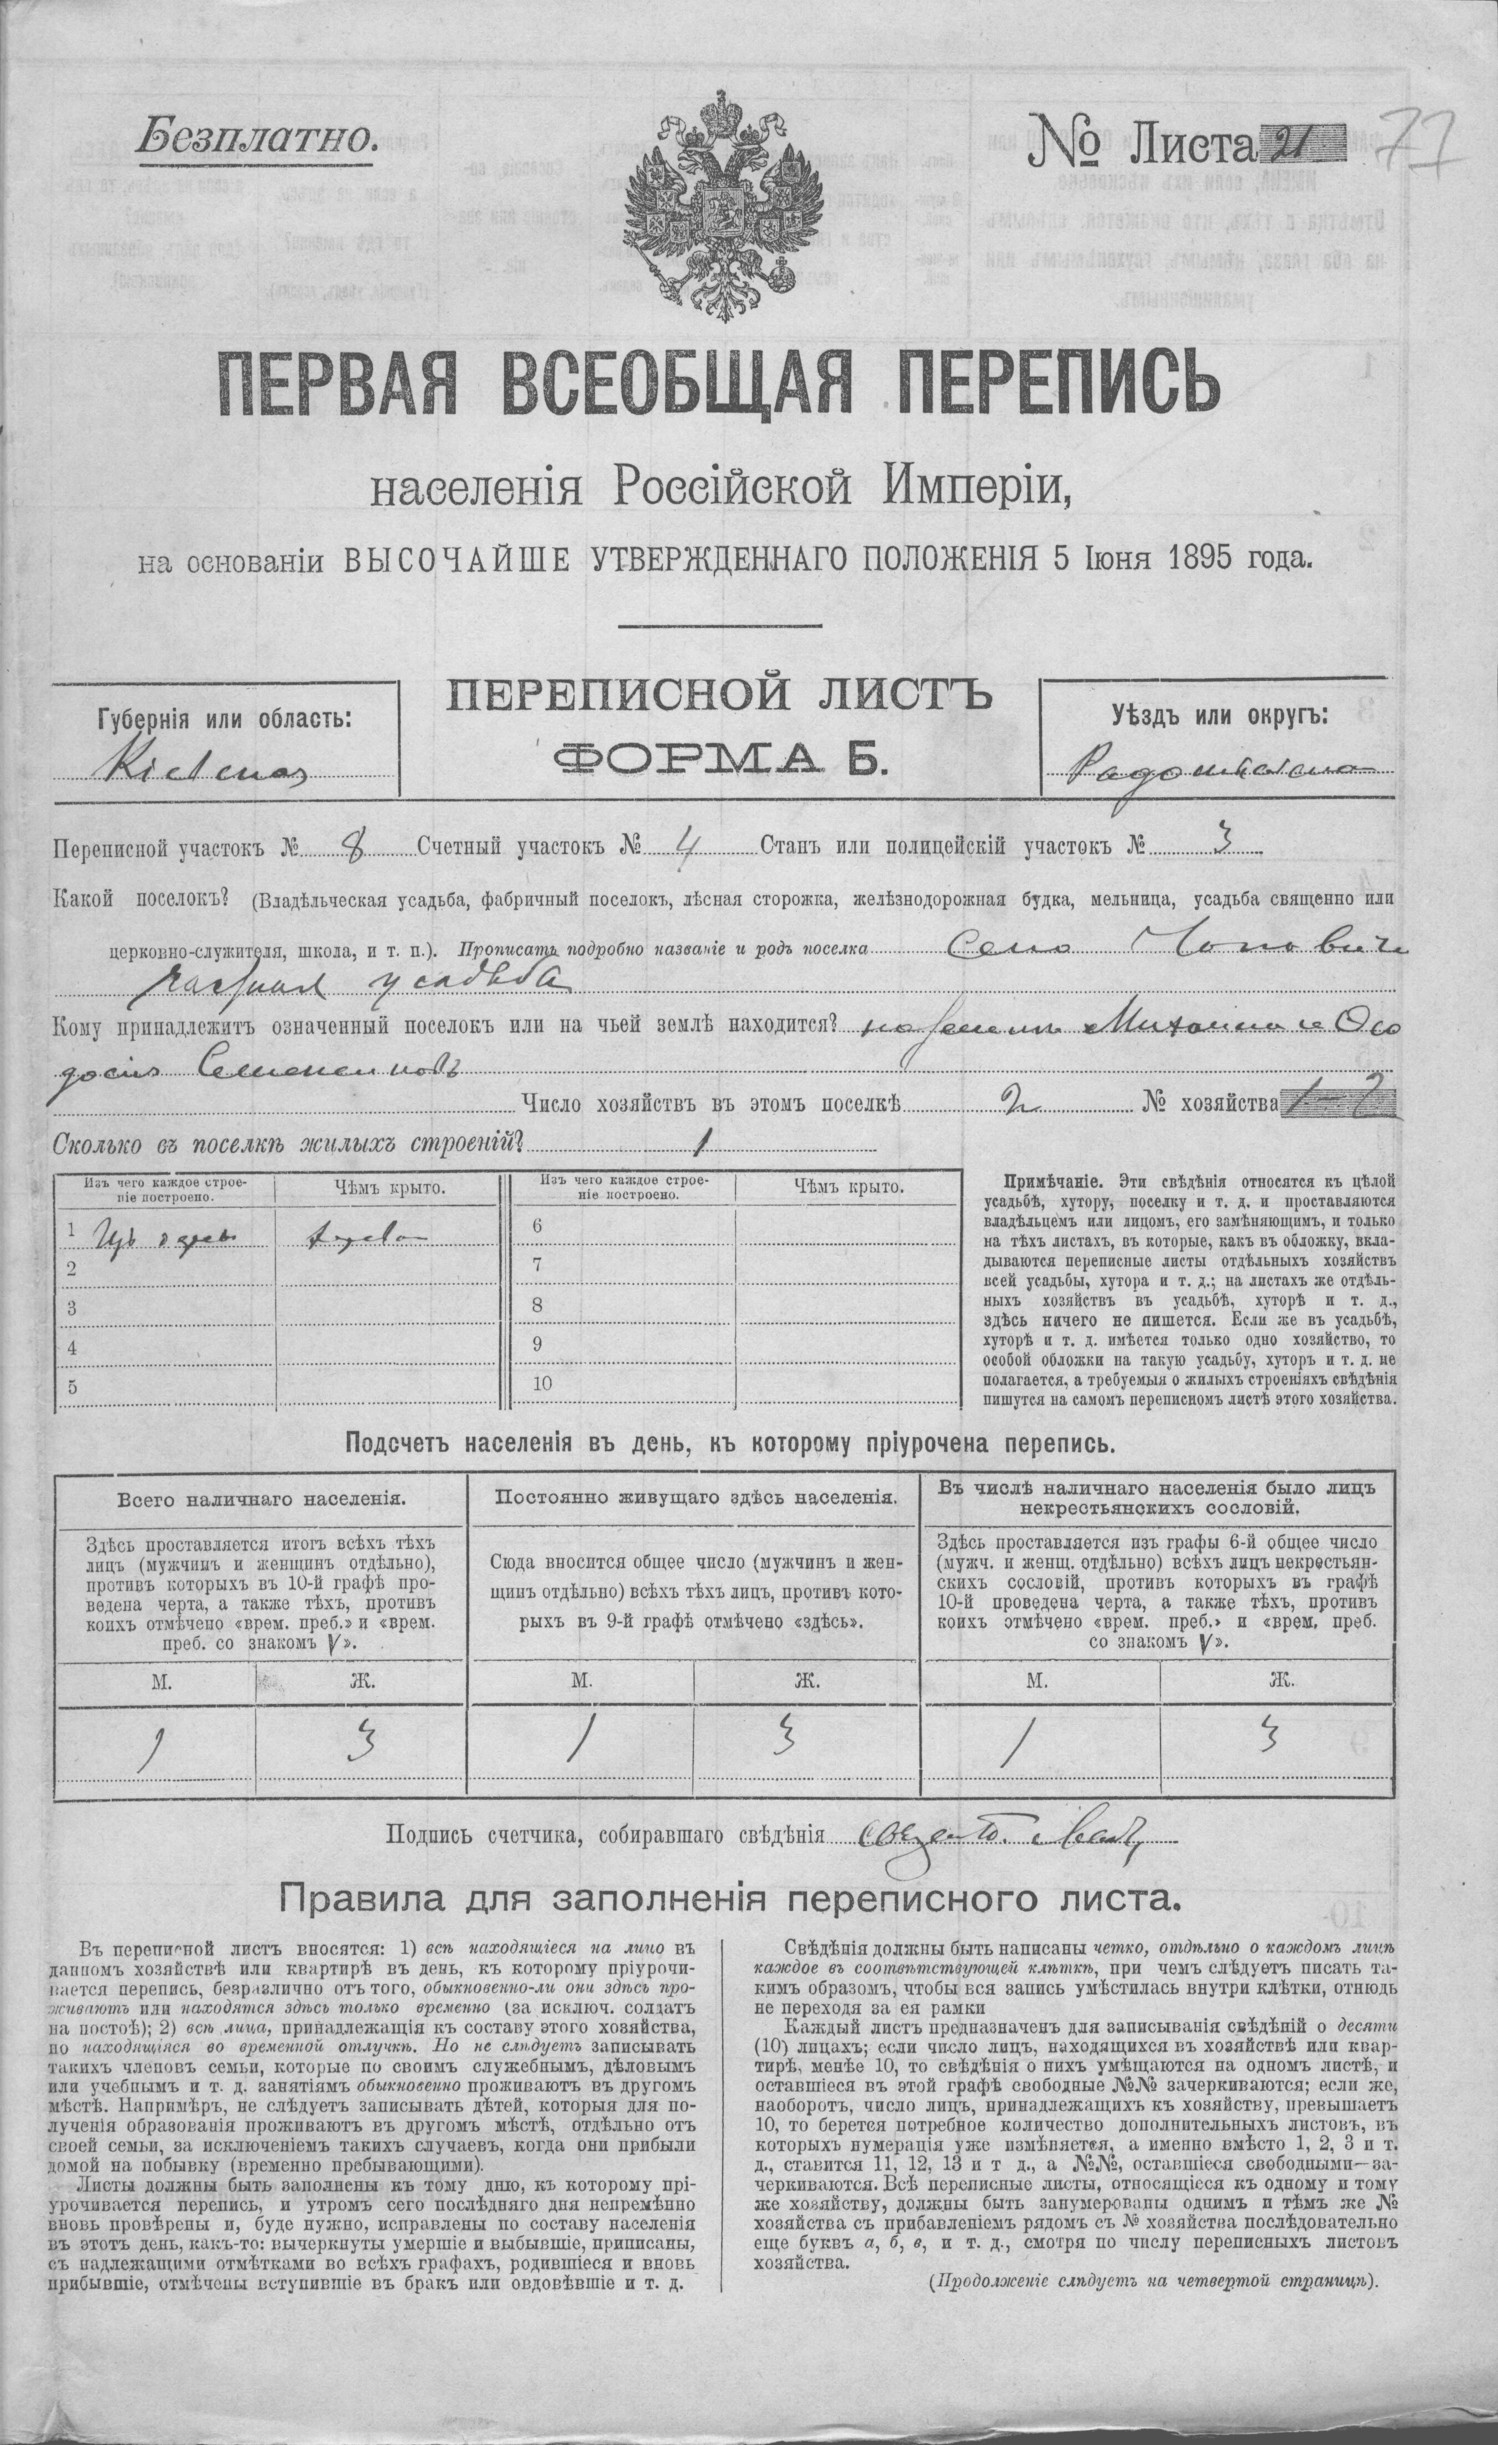 Безплатно.
№ Листа 21
77
ПЕРВАЯ ВСЕОБЩАЯ ПЕРЕПИСЬ
населенія Россійской Имперіи,
на основаніи ВЫСОЧАЙШЕ УТВЕРЖДЕННАГО ПОЛОЖЕНІЯ 5 Іюня 1895 года.
ПЕРЕПИСНОЙ ЛИСТЪ
ФОРМА Б.
Губернія или область:
Кіевская
Уѣздъ или округъ:
Переписной участокъ № 8 Счетный участокъ № 4 Станъ или полицейскій участокъ № 3
Какой поселокъ? (Владѣльческая усадьба, фабричный поселокъ, лѣсная сторожка, желѣзнодорожная будка, мельница, усадьба священно или
церковно-служителя, школа, и т. п.). Прописать подробно названіе и родъ поселка Село Чоповичи
частная усадьба
Кому принадлежитъ означенный поселокъ или на чьей землѣ находится? на земли Михаила и Ѳео
досія
Число хозяйствъ въ этомъ поселкѣ 2 № хозяйства 1-2
Сколько въ поселкѣ жилыхъ строеній? 1
Изъ чего каждое строе-
ніе построено.
Чѣмъ крыто.
Изъ чего каждое строе-
ніе построено.
Чѣмъ крыто.
1 Изъ дерева
6
2
7
3
8
4
9
5
10
Примѣчаніе. Эти свѣдѣнія относятся къ цѣлой
усадьбѣ, хутору, поселку и т. д. и проставляются
владѣльцемъ или лицомъ, его замѣняющимъ, и только
на тѣхъ листахъ, въ которые, какъ въ обложку, вкла-
дываются переписные листы отдѣльныхъ хозяйствъ
всей усадьбы, хутора и т. д.; на листахъ же отдѣль-
ныхъ хозяйствъ въ усадьбѣ, хуторѣ и т. д.,
здѣсь ничего не пишется. Если же въ усадьбѣ,
хуторѣ и т. д. имѣется только одно хозяйство, то
особой обложки на такую усадьбу, хуторъ и т. д. не
полагается, а требуемыя о жилыхъ строеніяхъ свѣдѣнія
пишутся на самомъ переписномъ листѣ этого хозяйства.
Подсчетъ населенія въ день, къ которому пріурочена перепись.
Всего наличнаго населенія.
Здѣсь проставляется итогъ всѣхъ тѣхъ
лицъ (мужчинъ и женщинъ отдѣльно),
противъ которыхъ въ 10-й графѣ про-
ведена черта, а также тѣхъ, противъ
коихъ отмѣчено «врем. преб.» и «врем.
преб. со знакомъ V».
М. Ж.
1 3
Постоянно живущаго здѣсь населенія.
Сюда вносится общее число (мужчинъ и жен-
щинъ отдѣльно) всѣхъ тѣхъ лицъ, противъ кото-
рыхъ въ 9-й графѣ отмѣчено «здѣсь».
М. Ж.
1 3
Въ числѣ наличнаго населенія было лицъ
некрестьянскихъ сословій.
Здѣсь проставляется изъ графы 6-й общее число
(мужч. и женщ. отдѣльно) всѣхъ лицъ некрестьян-
скихъ сословій, противъ которыхъ въ графѣ
10-й проведена черта, а также тѣхъ, противъ
коихъ отмѣчено «врем. преб.» и «врем. преб.
со знакомъ V».
М. Ж.
1 3
Подпись счетчика, собиравшаго свѣдѣнія
Правила для заполненія переписного листа.
Въ переписной листъ вносятся: 1) всѣ находящіеся на лицо въ
данномъ хозяйствѣ или квартирѣ въ день, къ которому пріурочи-
вается перепись, безразлично отъ того, обыкновенно-ли они здѣсь про-
живаютъ или находятся здѣсь только временно (за исключ. солдатъ
на постоѣ); 2) всѣ лица, принадлежащія къ составу этого хозяйства,
но находящіяся во временной отлучкѣ. Но не слѣдуетъ записывать
такихъ членовъ семьи, которые по своимъ служебнымъ, дѣловымъ
или учебнымъ и т. д. занятіямъ обыкновенно проживаютъ въ другомъ
мѣстѣ. Напримѣръ, не слѣдуетъ записывать дѣтей, которыя для по-
лученія образованія проживаютъ въ другомъ мѣстѣ, отдѣльно отъ
своей семьи, за исключеніемъ такихъ случаевъ, когда они прибыли
домой на побывку (временно пребывающими).
Листы должны быть заполнены къ тому дню, къ которому прі-
урочивается перепись, и утромъ сего послѣдняго дня непремѣнно
вновь провѣрены и, буде нужно, исправлены по составу населенія
въ этотъ день, какъ-то: вычеркнуты умершіе и выбывшіе, приписаны,
съ надлежащими отмѣтками во всѣхъ графахъ, родившіеся и вновь
прибывшіе, отмѣчены вступившіе въ бракъ или овдовѣвшіе и т. д.
Свѣдѣнія должны быть написаны четко, отдѣльно о каждомъ лицѣ
каждое въ соотвѣтствующей клѣткѣ, при чемъ слѣдуетъ писать та-
кимъ образомъ, чтобы вся запись умѣстилась внутри клѣтки, отнюдь
не переходя за ея рамки
Каждый листъ предназначенъ для записыванія свѣдѣній о десяти
(10) лицахъ; если число лицъ, находящихся въ хозяйствѣ или квар-
тирѣ, менѣе 10, то свѣдѣнія о нихъ умѣщаются на одномъ листѣ, и
оставшіеся въ этой графѣ свободные №№ зачеркиваются; если же,
наоборотъ, число лицъ, принадлежащихъ къ хозяйству, превышаетъ
10, то берется потребное количество дополнительныхъ листовъ, въ
которыхъ нумерація уже измѣняется, а именно вмѣсто 1, 2, 3 и т.
д., ставится 11, 12, 13 и т д., а №№, оставшіеся свободными—за-
черкиваются. Всѣ переписные листы, относящіеся къ одному и тому
же хозяйству, должны быть занумерованы однимъ и тѣмъ же №
хозяйства съ прибавленіемъ рядомъ съ № хозяйства послѣдовательно
еще буквъ а, б, в, и т. д., смотря по числу переписныхъ листовъ
хозяйства.
(Продолженіе слѣдуетъ на четвертой страницѣ).